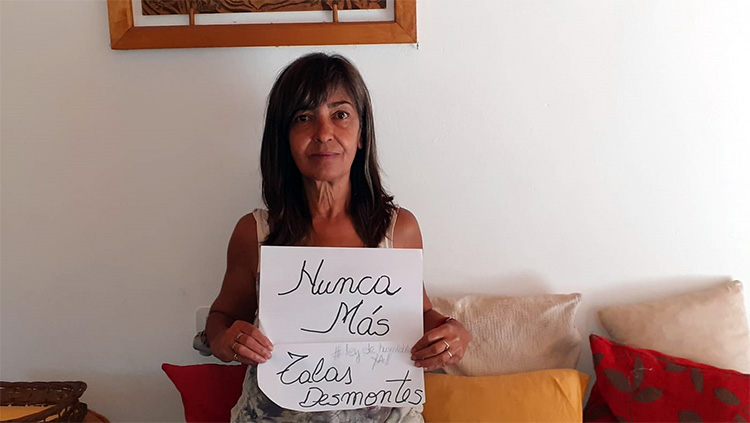 Nunca
Más
#ley de humedales
YA!
Talas
Desmontes